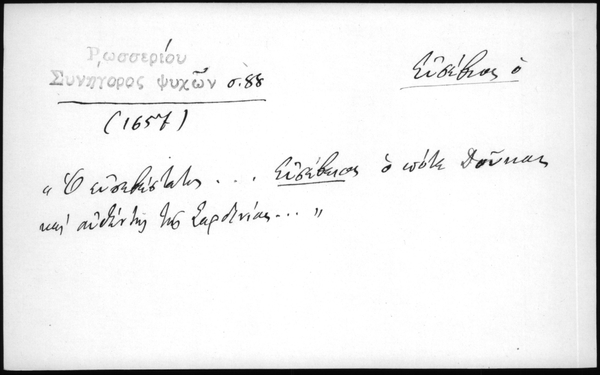 Ρωσσερίου
Συνήγορος ψυχῶν σ.88
Εὐσέβειος ὁ
(1657)
"Ὁ εὐσεβέστατος ... Εὐσέβειος ὁ ποτὲ Δοῦκας
καὶ αὐθέντης τῆς Σαρδινίας..."